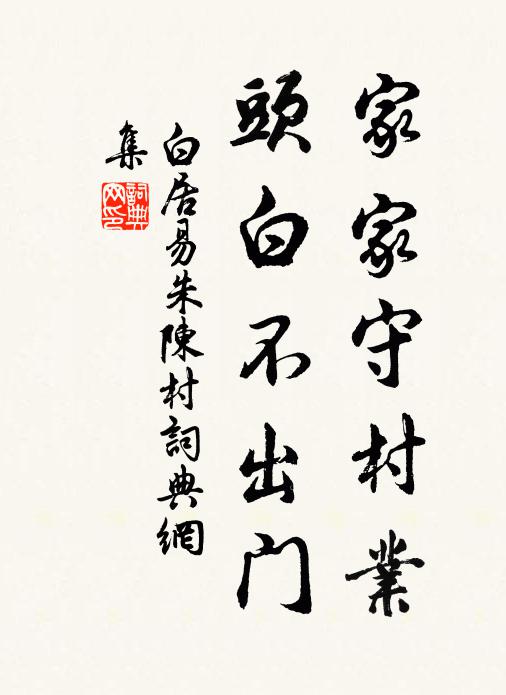 家家守村業
頭白不出門
白居易朱陳村詞典網
集
詞典
网印